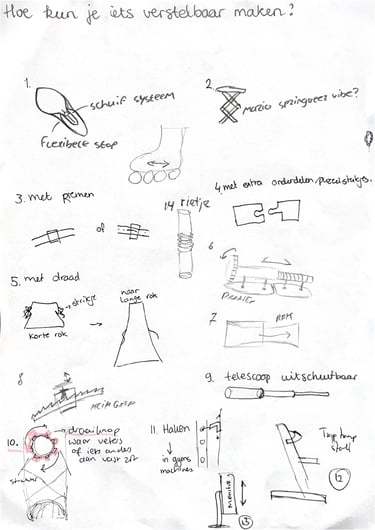 Hoe kun je iets verstelbaar maken?
1.
schuif systeem
Flexibele stof
2.
Mario springveer vibe?
3. met riemen
of
14 rietje
4. met extra onderdelen/puzzelstukjes.
5. met draad
strikje
korte rok
naar
lange rok
6
7
REM
8
9. telescoop uitschuifbaar
10.
draaiknop
waar veters
of iets anders
aan vast zit
11. Haken
in gym
machines
Monitor
13
12